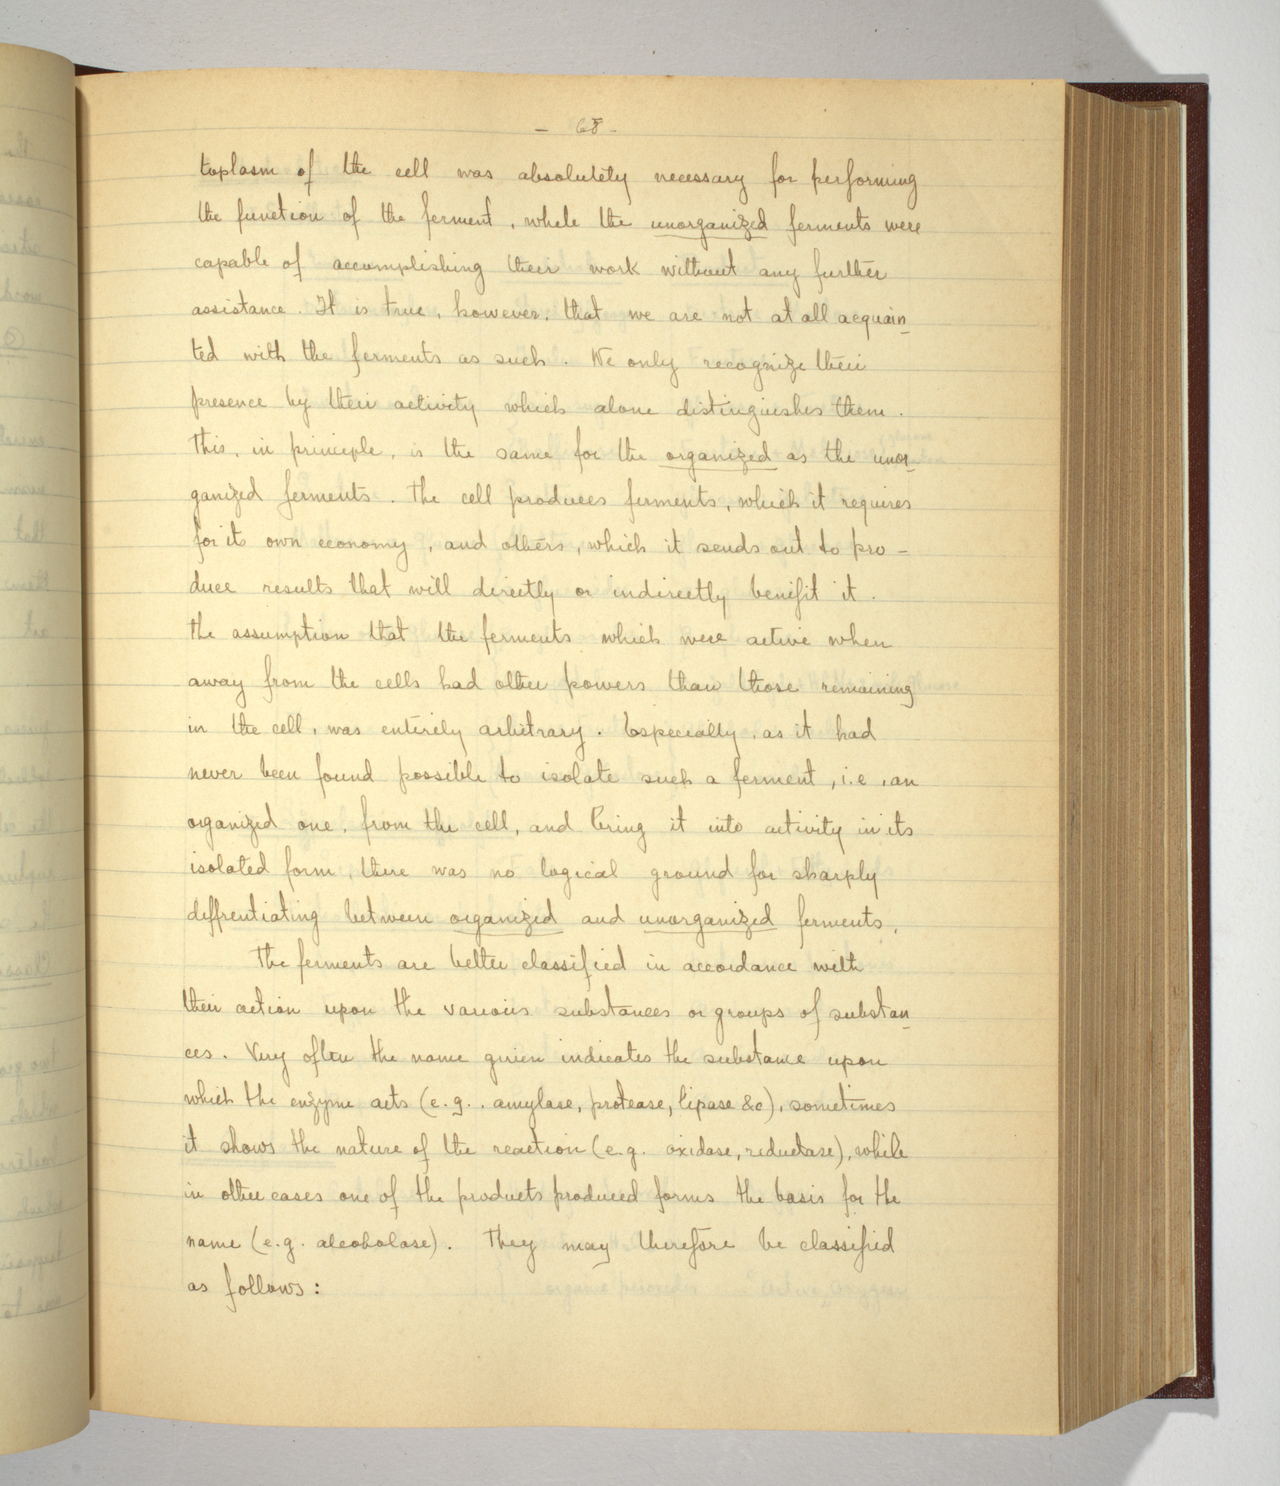 - 68 -
toplasm of the cell was absolutely necessary for performing
the function of the ferment, while the unorganized ferments were
capable of accomplishing their work without any further
assistance. It is true, however, that we are not at all acquain-
ted with the ferments as such. We only recognize their
presence by their activity which alone distinguishes them.
This, in principle, is the same for the organized as the unor-
ganized ferments. The cell produces ferments, which it requires
for its own economy, and others, which it sends out to pro-
duce results that will directly or indirectly benifit it.
The assumption that the ferments which were active when
away from the cells had other powers than those remaining
in the cell, was entirely arbitrary. Especially, as it had
never been found possible to isolate such a ferment, i.e, an
organized one, from the cell, and bring it into activity in its
isolated form, there was no logical ground for sharply
diffrentiating between organized and unorganized ferments.
The ferments are better classified in accordance with
their action upon the various substances or groups of substan-
ces. Very often the name given indicates the substance upon
which the enzyme acts (e.g.. amylase, protease, lipase &c), sometimes
it shows the nature of the reaction (e.g. oxidase, reductase), while
in other cases one of the products produced forms the basis for the
name (e.g. alcoholase). They may therefore be classified
as follows: